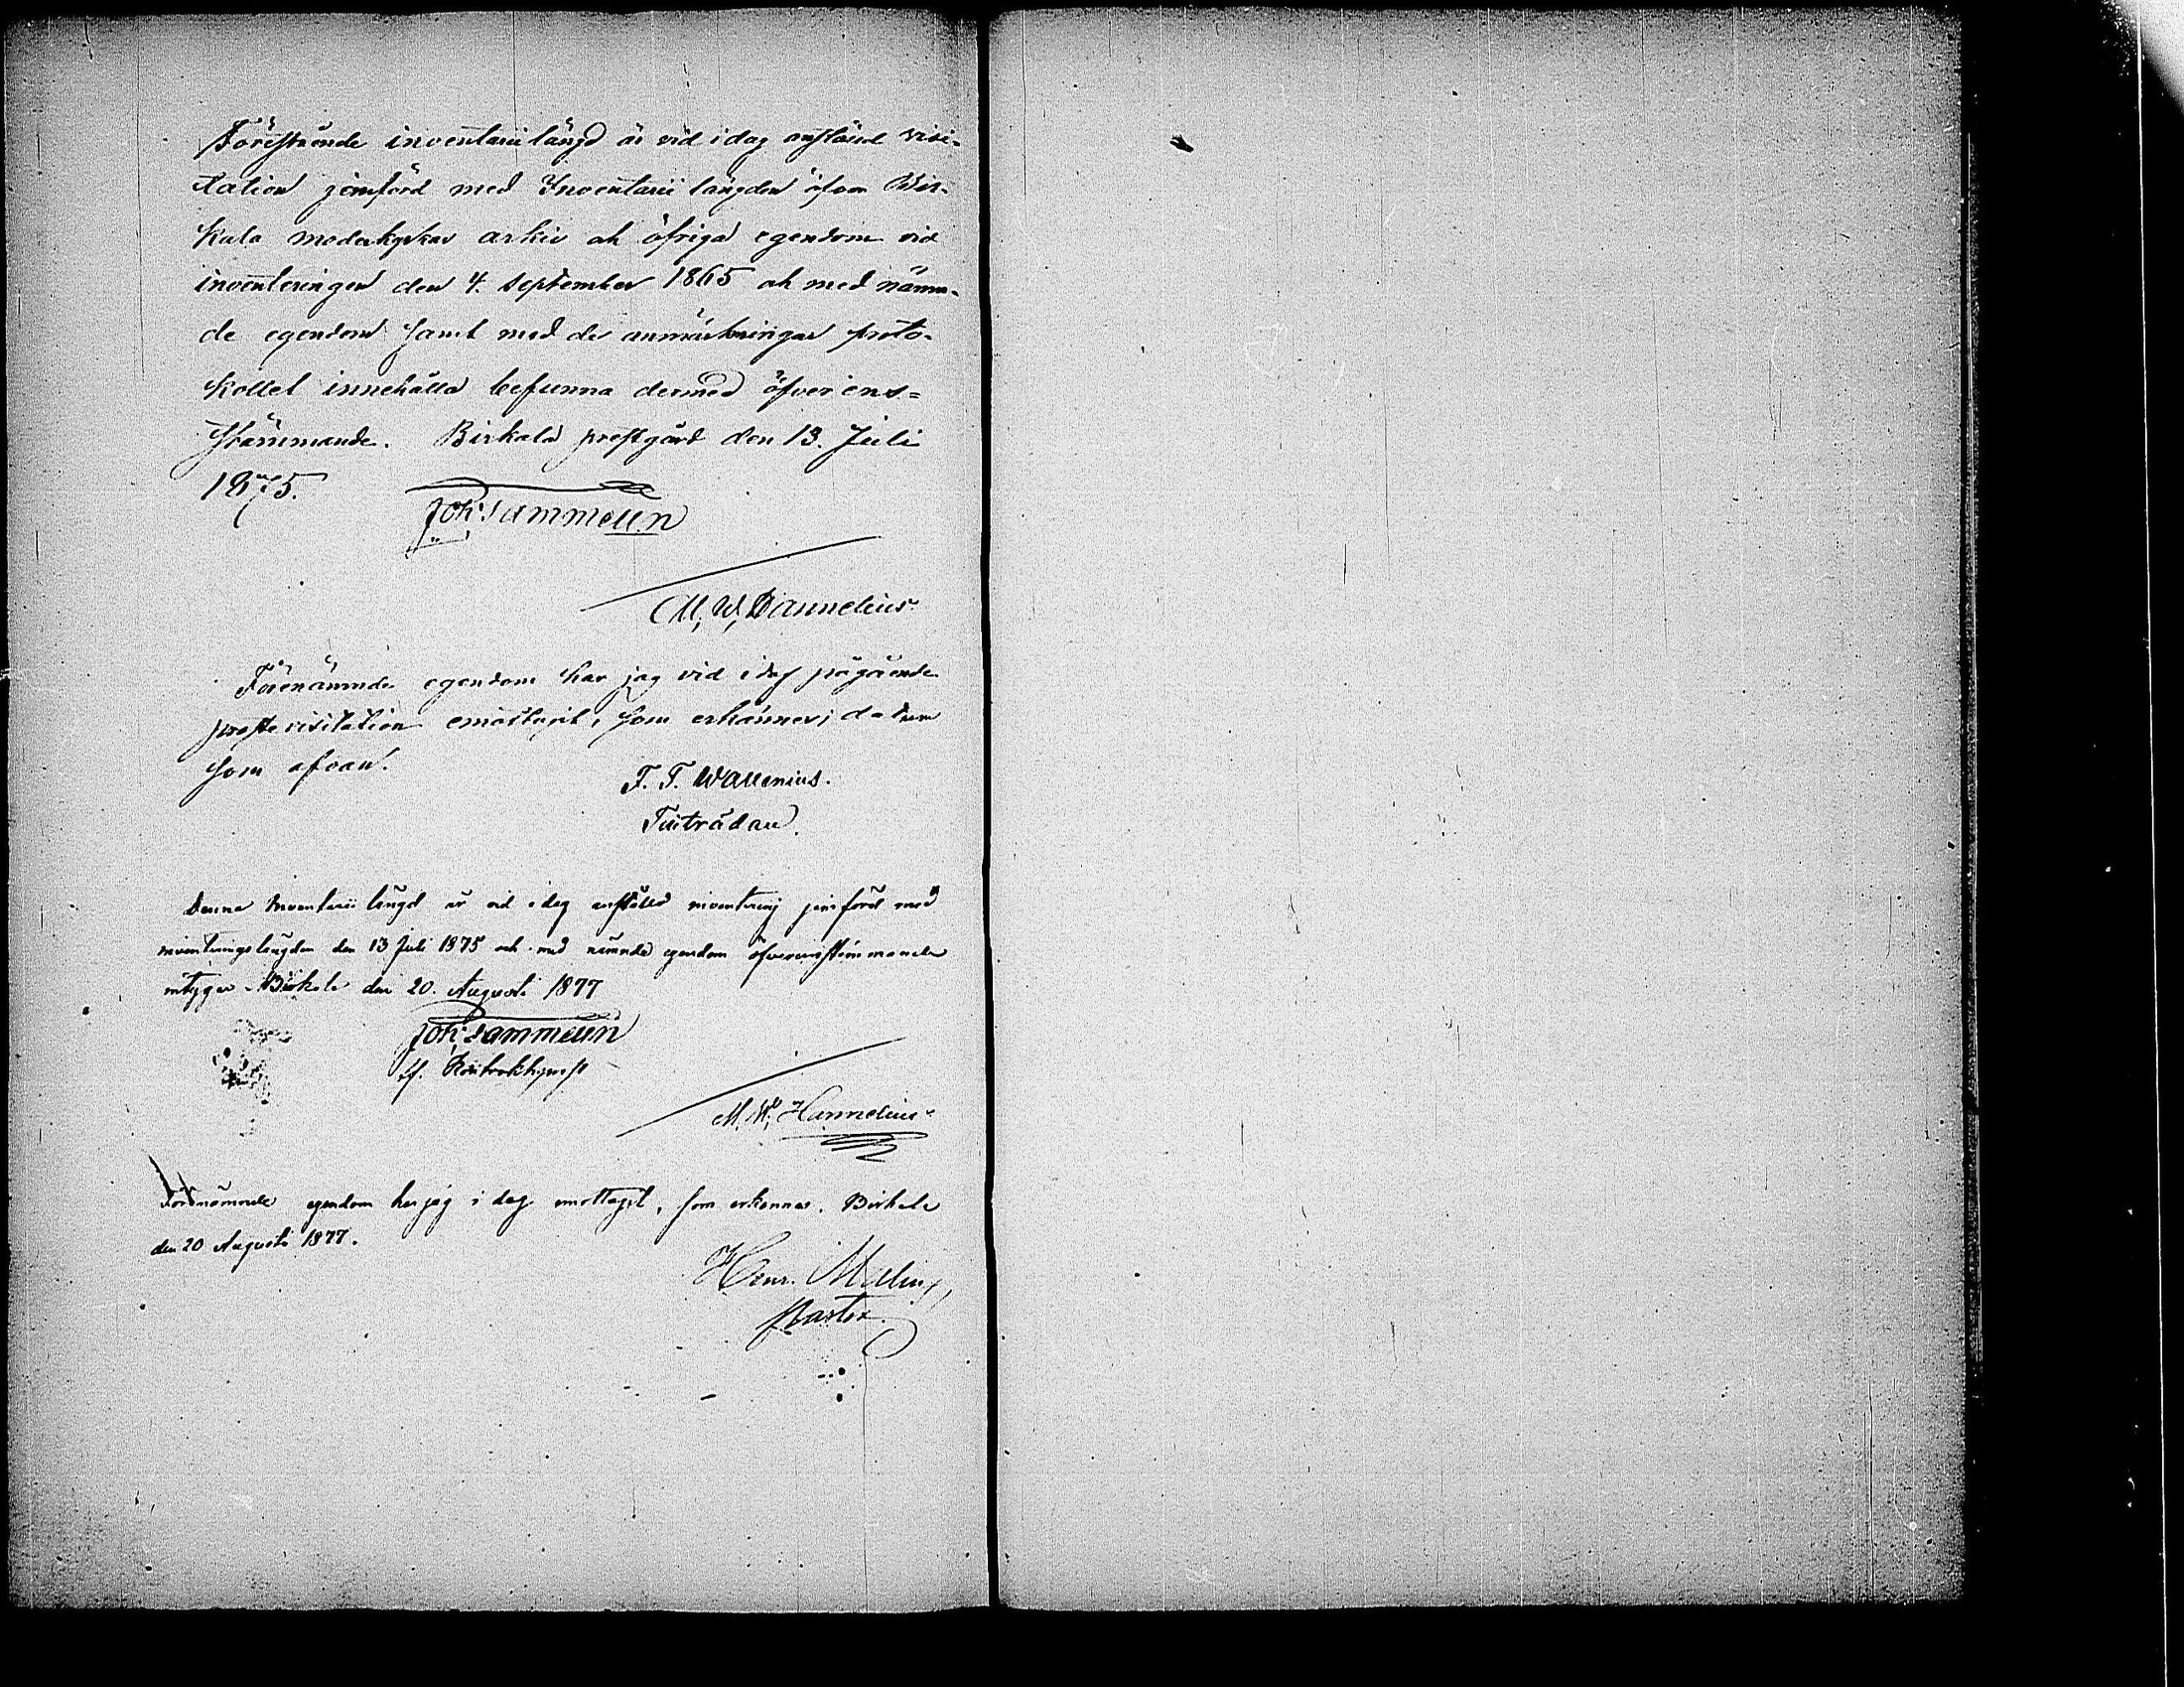 Förestående inventarii längd är vid i dag anstäld visi-
tation jemförd med Inventarii längden öfver Bir-
kala moderkyrkas arkiv och öfriga egendom vid
inventeringen den 4. September 1865 och med nämn-
de egendom samt med de anmärkningar proto-
kollet innehålla befunna dermed öfverens=
stämmande. Birkala prestgård den 13. Juli
1875.
Joh: Sammelin
M. W. Hannelius
Förenämnde egendom har jag vid i dag pågående
prostevisitation emottagit, som erkännes; datum
som ofvan.
F. F. Wallenius.
Tillträdare.
Denna Inventarii längd är vid i dag anstäld inventering jemförd med
inventeringslängden den 13 Juli 1875 och med nämnde egendom öfverensstämmande
intygar Birkala den 20. Augusti 1877
Joh: Sammelin
tf. Kontraktsprost
M. W. Hannelius
Förenämnde egendom har jag i dag emottagit, som erkännes. Birkala
den 20 Augusti 1877.
Henr. Malin,
Pastor.